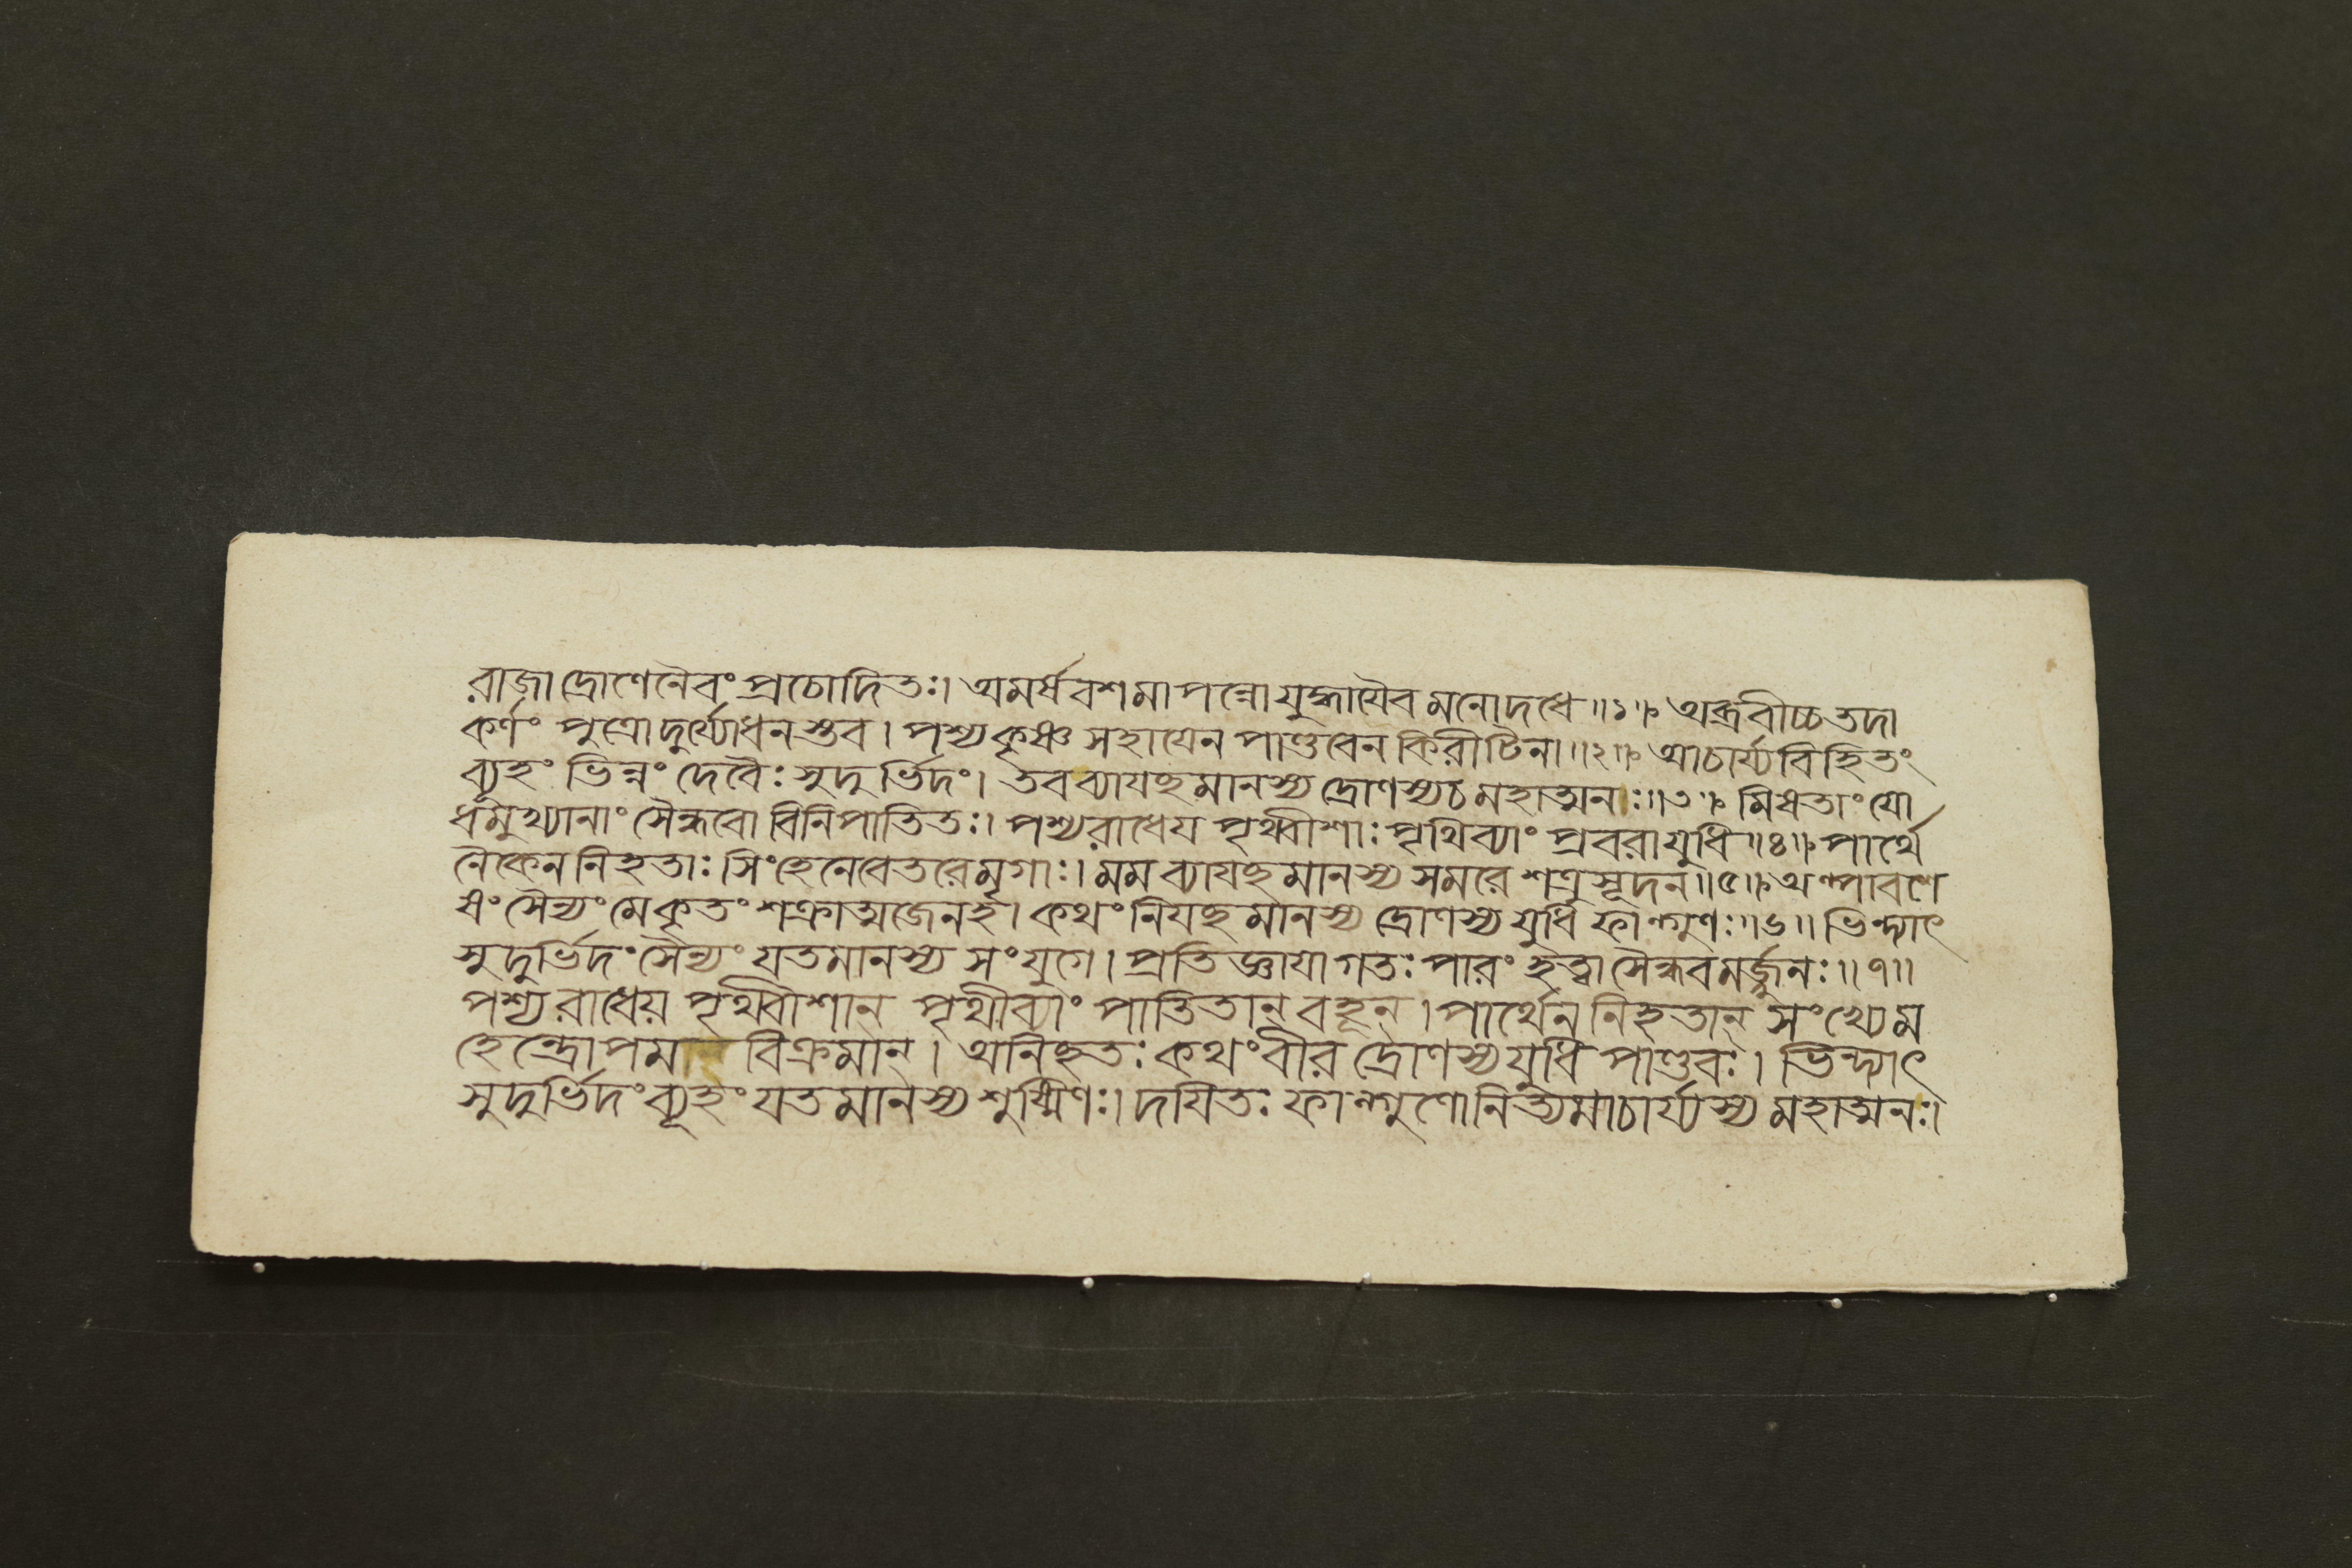 রাজা দ্রোণেনৈবং প্রচোদিতঃ। অমর্ষবশমাপন্নো যুদ্ধায়ৈব মনোদধে॥১॥ অব্রবীচ্চ তদা
কর্ণং পুত্রো দুর্য্যোধনস্তব। পশ্য কৃষ্ণ সহায়েন পাণ্ডবেন কিরীটিনা॥২॥ আচার্য্যবিহিতং
ব্যূহং ভিন্নং দেবৈঃ সুদুর্ভিদং। তব ব্যাযচ্ছমানস্য দ্রোণস্য চ মহাত্মনঃ॥৩॥ মিষতাং যো
ধমুখ্যানাং সৈন্ধবো বিনিপাতিতঃ। পশ্য রাধেয পৃথ্বীশাঃ পৃথিব্যাং প্রবরা যুধি॥৪॥ পার্থে
নৈকেন নিহতাঃ সিংহেনেবেতরে মৃগাঃ। মম ব্যাযচ্ছমানস্য সমরে শত্রুসূদন॥৫॥ অল্পাবশে
ষং সৈন্যং মে কৃতং শক্রাত্মজেন হ। কথং নিযচ্ছমানস্য দ্রোণস্য যুধি ফাল্গুণঃ॥৬॥ ভিন্দ্যাৎ
সুদুর্ভিদং সৈন্যং যতমানস্য সংযুগে। প্রতিজ্ঞাযা গতঃ পারং হত্বা সৈন্ধবমর্জ্জুনঃ॥৭॥
পশ্য রাধেয় পৃথ্বীশান্ পৃথীব্যাং পাতিতান্ বহূন্। পার্থেন নিহতান্ সংখ্যে ম
হেন্দ্রোপম বিক্রমান্। অনিচ্ছতঃ কথং বীর দ্রোণস্য যুধি পাণ্ডবঃ। ভিন্দ্যাৎ
সুদুর্ভিদং ব্যূহং যতমানস্য শুষ্মিণঃ। দযিতঃ ফাল্গুণো নিত্যমাচার্য্যস্য মহাত্মনঃ।